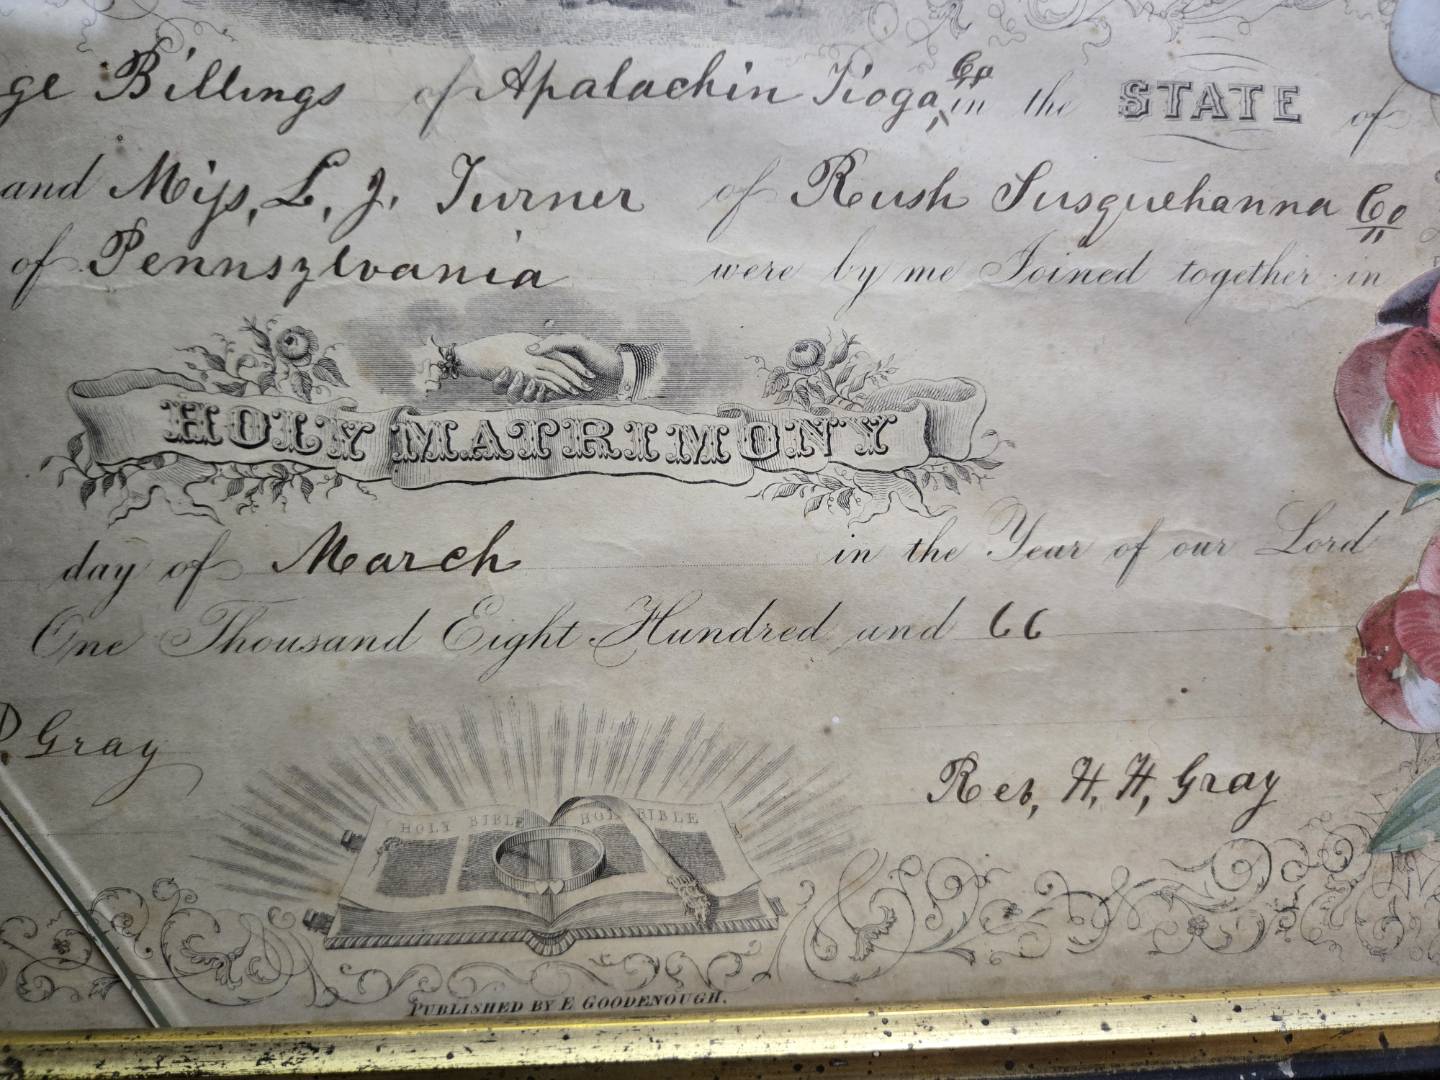 ge Billings of Apalachin Tioga Co in the STATE of
and Miss, L, J, Turner of Rush Susquehanna Co
of Pennszlvania were by me Joined together in
HOLY MATRIMONY
day of March in the Year of our Lord
One Thousand Eight Hundred and 66
P. Gray
Rev, H, H, Gray
HOLY BIBLE HOLY BIBLE
PUBLISHED BY E GOODENOUGH.